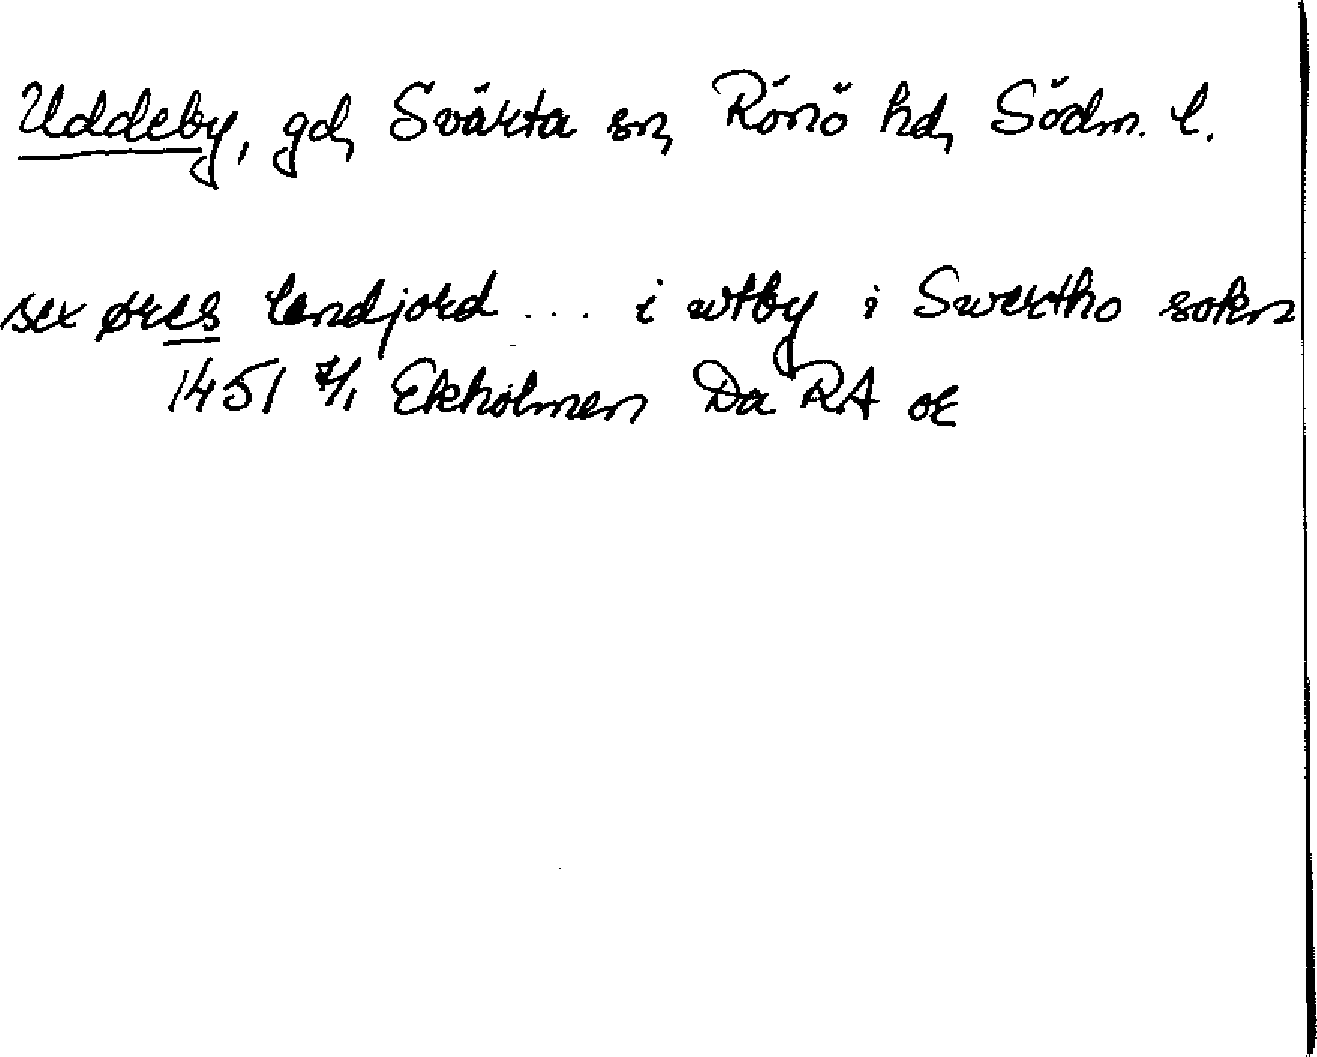 Uddeby, gd, Svärta sn, Rönö hd, Södm. l.
sex øres landjord ... i wtby i Swertho sokn
1451 7/1 Ekholmen Da RA or